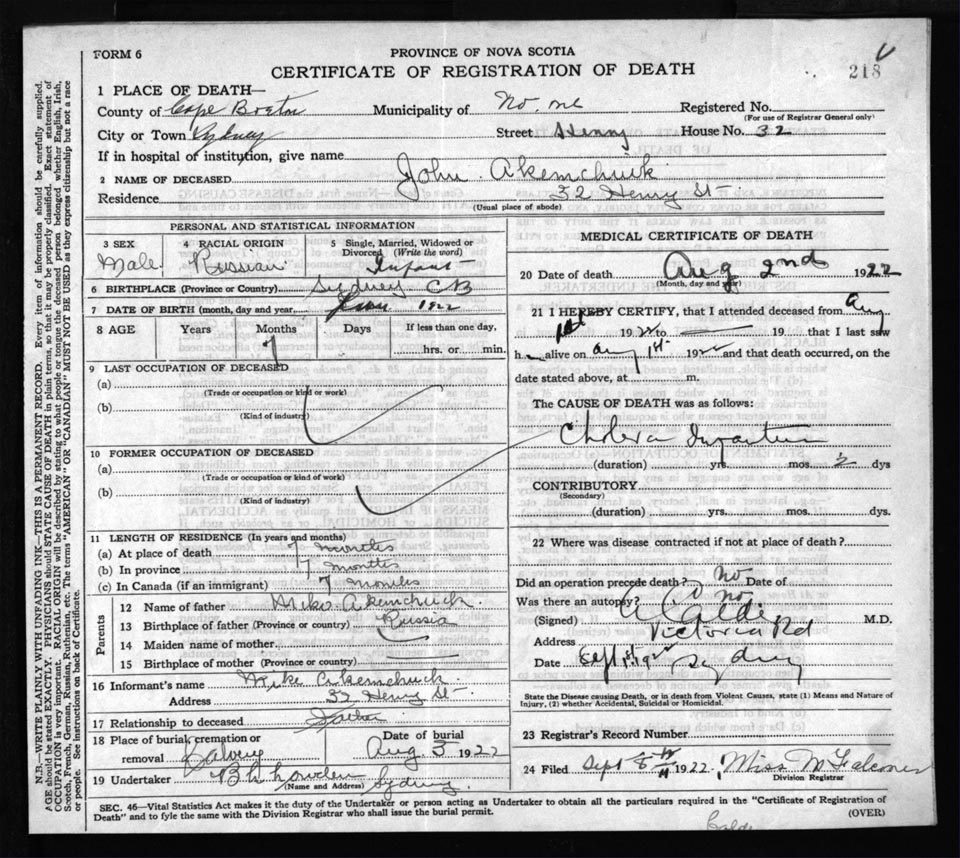 FORM 6
PROVINCE OF NOVA SCOTIA
CERTIFICATE OF REGISTRATION OF DEATH
218
1 PLACE OF DEATH—
County of Cape Breton Municipality of No. me Registered No.
(For use of Registrar General only)
City or Town Sydney Street Henry House No. 32
If in hospital of institution, give name
2 NAME OF DECEASED John Akemchuik
Residence 32 Henry St
(Usual place of abode)
PERSONAL AND STATISTICAL INFORMATION
3 SEX Male
4 RACIAL ORIGIN Russian
5 Single, Married, Widowed or Divorced (Write the word) Infant
6 BIRTHPLACE (Province or Country) Sydney CB
7 DATE OF BIRTH (month, day and year) 1922
8 AGE Years Months 7 Days If less than one day, hrs. or min.
9 LAST OCCUPATION OF DECEASED
(a)
(Trade or occupation or kind or work)
(b)
(Kind of industry)
10 FORMER OCCUPATION OF DECEASED
(a)
(Trade or occupation or kind of work)
(b)
(Kind of industry)
11 LENGTH OF RESIDENCE (In years and months)
(a) At place of death 7 months
(b) In province 7 months
(c) In Canada (if an immigrant) 7 months
Parents
12 Name of father Mike Akemchuck
13 Birthplace of father (Province or country) Russia
14 Maiden name of mother
15 Birthplace of mother (Province or country)
16 Informant's name Mike Akemchuck
Address 32 Henry St
17 Relationship to deceased Father
18 Place of burial, cremation or removal Date of burial Aug 3 1922
19 Undertaker Sydney
(Name and Address)
MEDICAL CERTIFICATE OF DEATH
20 Date of death Aug 2nd 1922
(Month, day and year)
21 I HEREBY CERTIFY, that I attended deceased from Aug
1st 1922 to 19 that I last saw
h alive on Aug 1st 1922 and that death occurred, on the
date stated above, at m.
The CAUSE OF DEATH was as follows:
Cholera Infantum
(duration) yrs. mos. 2 dys
CONTRIBUTORY
(Secondary)
(duration) yrs. mos. dys.
22 Where was disease contracted if not at place of death?
Did an operation precede death? no Date of
Was there an autopsy? no
(Signed) M.D.
Address Victoria Rd
Date Sept 1st 1922 Sydney
State the Disease causing Death, or in death from Violent Causes, state (1) Means and Nature of
Injury, (2) whether Accidental, Suicidal or Homicidal.
23 Registrar's Record Number
24 Filed Sept 8th 1922 Miss M Falconer
Division Registrar
SEC. 46—Vital Statistics Act makes it the duty of the Undertaker or person acting as Undertaker to obtain all the particulars required in the "Certificate of Registration of
Death" and to fyle the same with the Division Registrar who shall issue the burial permit. (OVER)
N.B.—WRITE PLAINLY WITH UNFADING INK—THIS IS A PERMANENT RECORD. Every item of information should be carefully supplied.
AGE should be stated EXACTLY. PHYSICIANS should STATE CAUSE OF DEATH in plain terms, so that it may be properly classified. Exact statement of
OCCUPATION is very important. RACIAL ORIGIN will be described by stating to what people or tongue the deceased person belonged whether English, Irish,
Scotch, French, German, Russian, Ruthenian, etc. The terms "AMERICAN OR "CANADIAN" MUST NOT BE USED as they express citizenship but not a race
or people. See instructions on back of Certificate.